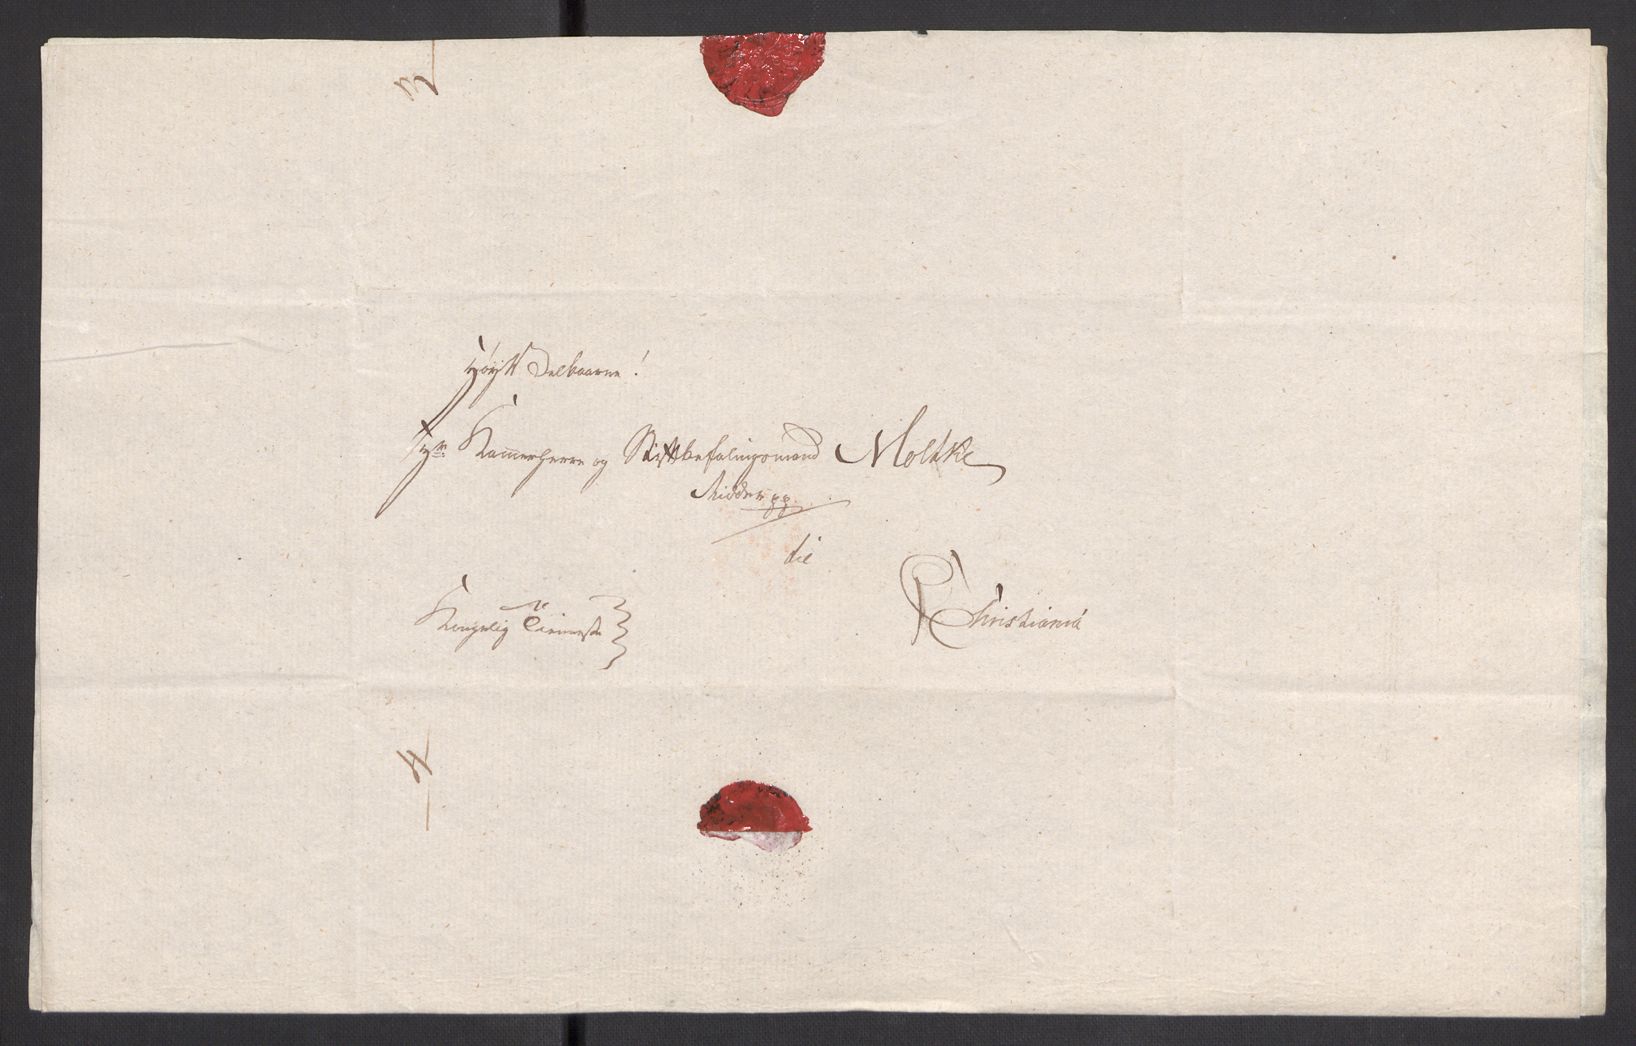 Høyst Velbaarne!
Hr. Kammerherre og Stiftbefalingsmand Moltke
Ridder pp.
til
Christiania
Kongelig Tieneste